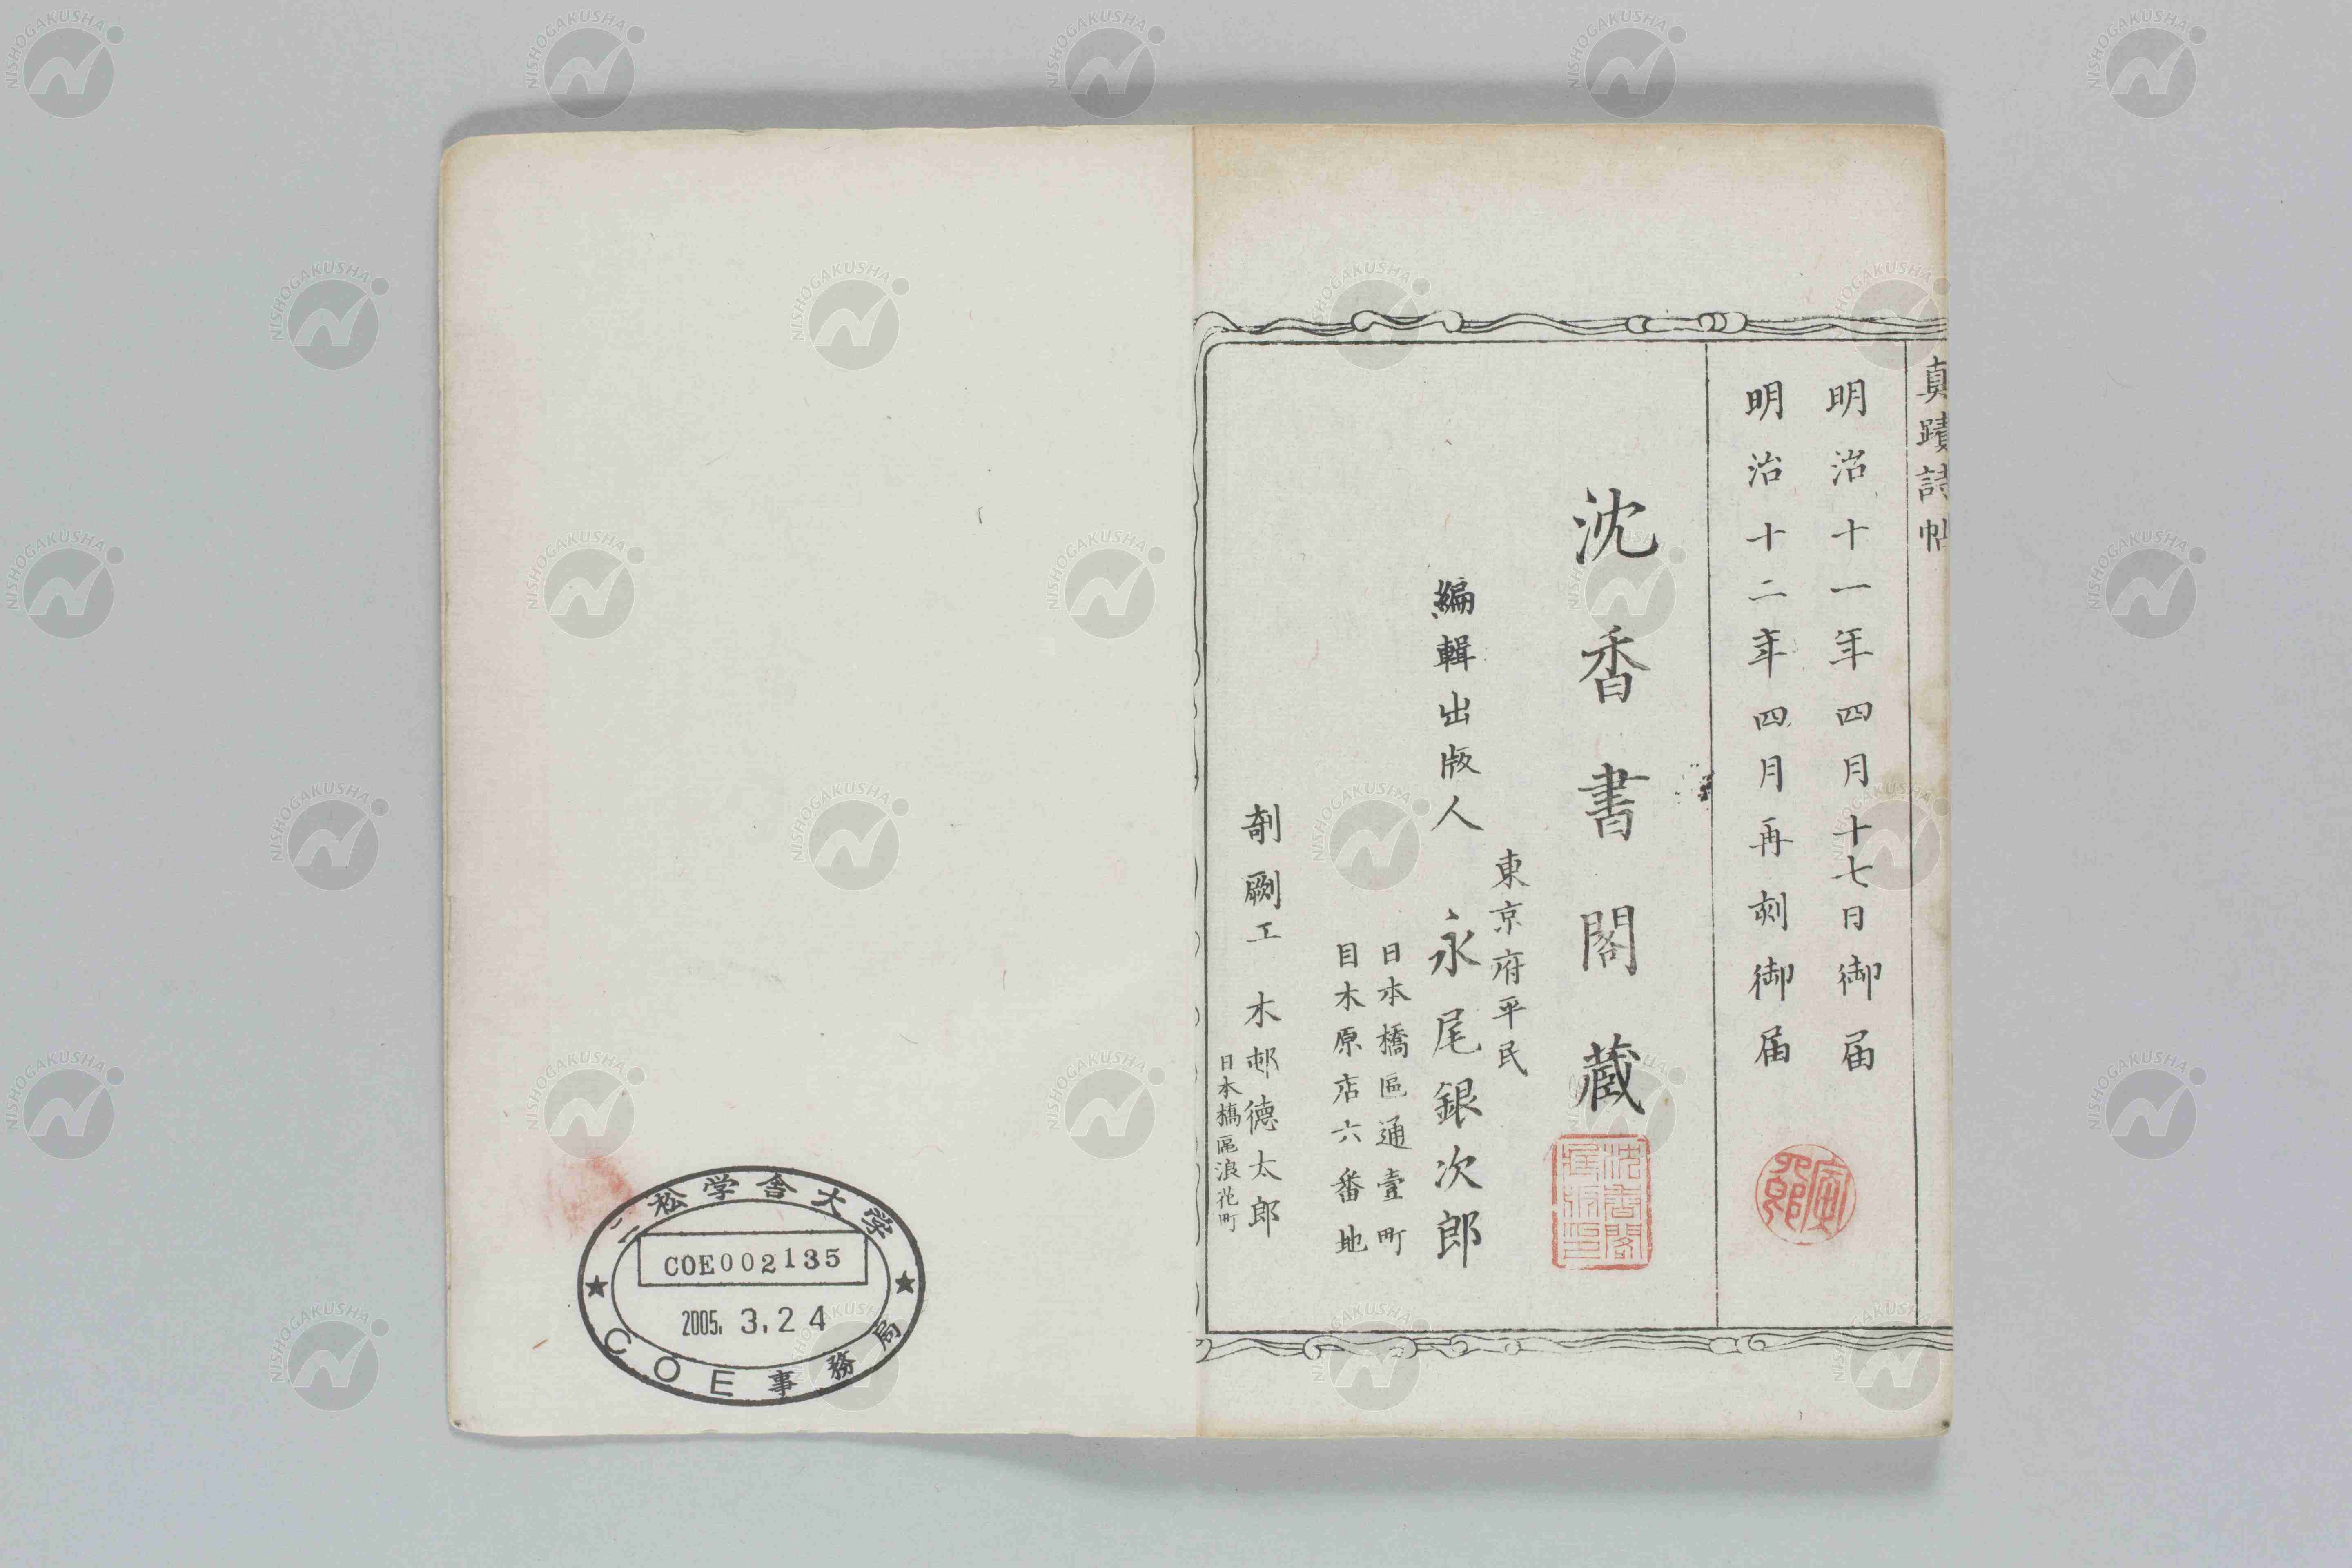 真蹟詩帖
明治十一年四月十七日御届
明治十二年四月再刻御届
沈香書閣蔵
東京府平民
編輯出版人 永尾銀次郎
日本橋區通壹町
目木原店六番地
剞劂工 木邨德太郎
日本橋區浪花町
二松学舎大学
COE002135
2005. 3. 24
COE事務局
NISHOGAKUSHA